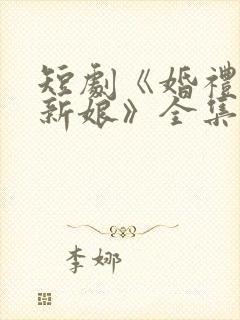 短劇《婚禮
新娘》全集
李娜